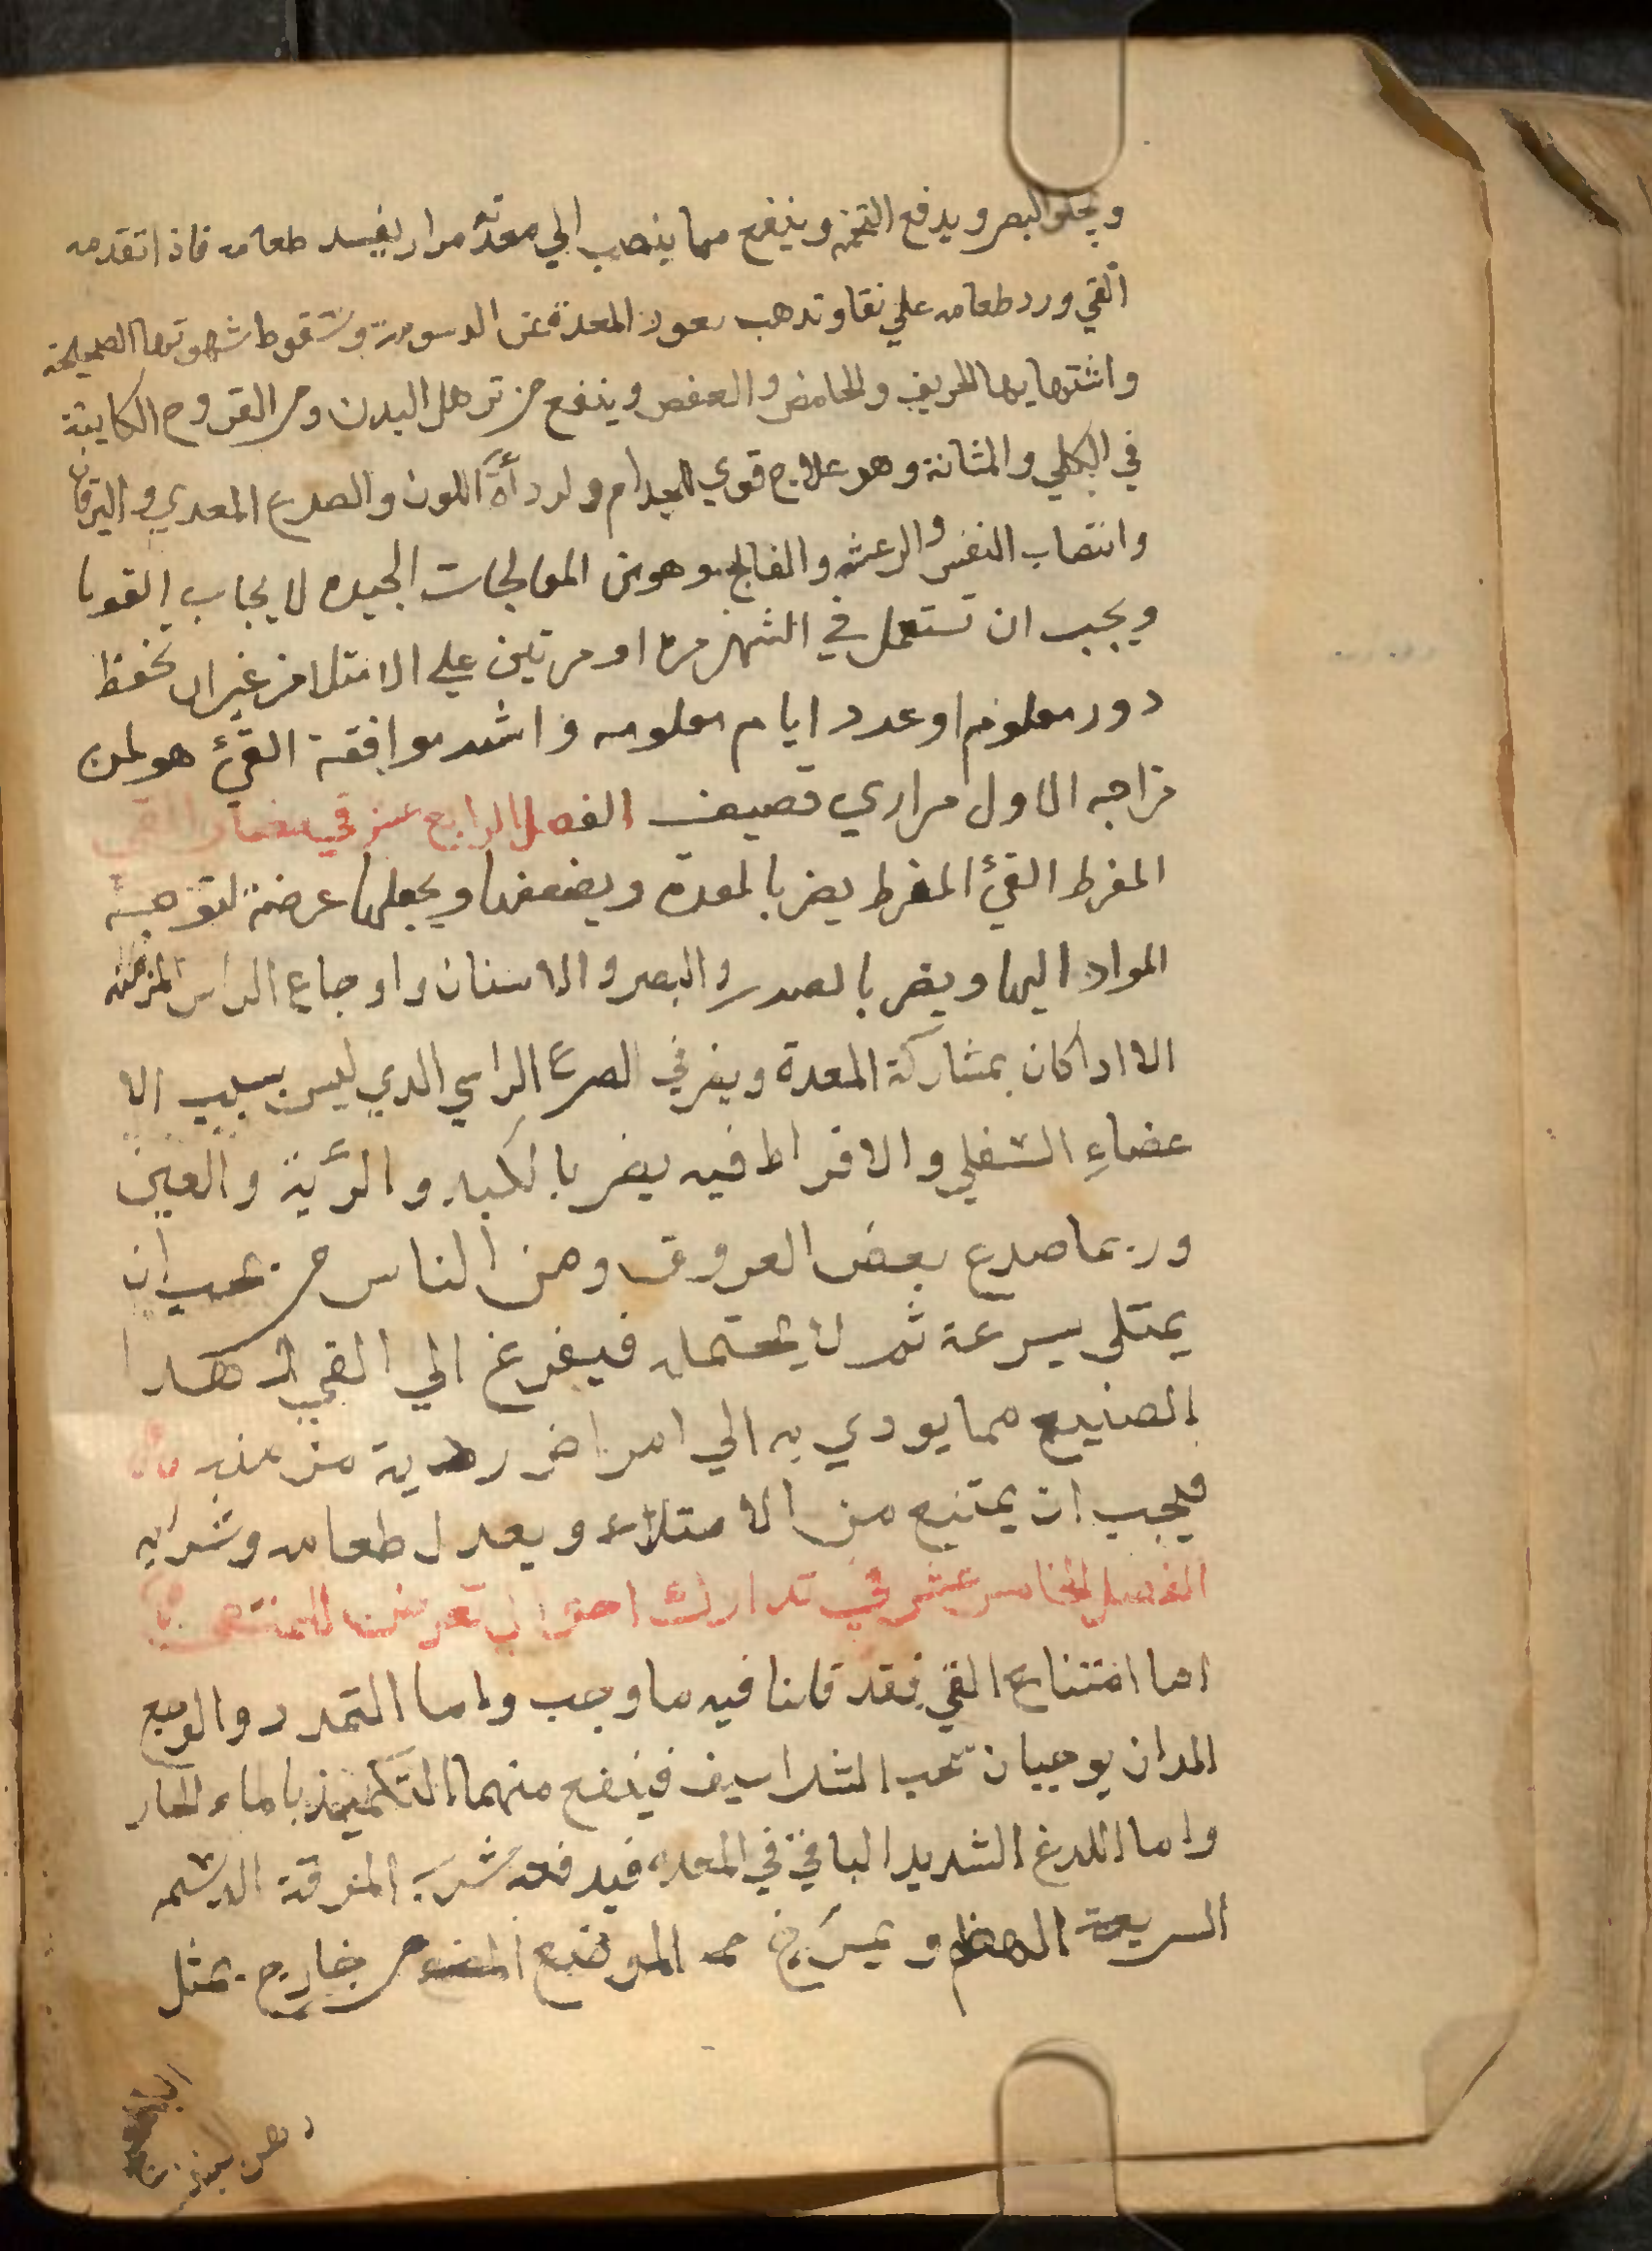 ويجلو البصر ويدفع التخمه وينفع مما ينصب الي معدته مرار يفسد طعامه فاذا تقدمه
القي ورد طعامه علي نقا وتدهب بعود المعدة عن الدسومة وسقوط شهوتها الصحيحة
واشتهايها الحريف والحامض والعفص وينفع من ترهل البدن ومن القروح الكاينة
في الكلي والمثانة وهو علاج قوي للجدام ولردأة اللون والصدع المعدي واليرقان
وانتصاب النفس والرعشه والفالج وهو من المعالجات الجيده لا يجاب القوبا
ويجب ان تستعمل في الشهر مره او مرتين علي الامتلا من غير ان تحفظ
دور معلوم او عدد ايام معلومه واشد موافقة القيء هو لمن
مزاجه الاول مراري قصيف الفصل الرابع عشر في مضار القي
المفرط القيء المفرط يضر بالمعدة ويضعفها ويجعلها عرضة لتوجه
المواد اليها ويضر بالصدر والبصر والاسنان واوجاع الراس المزمنه
الا ادا كان بمشاركة المعدة ويضر في الصرع الراسي الدي ليس بسبب الا
عضاء السفلي والافراط فيه يضر بالكبد والرئة والعين
وربما صدع بعض العروق ومن الناس من يحب ان
يمتلي بسرعة ثم لا يحتمله فيفرغ الي القي هدا
الصنيع مما يودي به الي امراض ردية مزمنه
فيجب ان يمتنع من الامتلاء ويعدل طعامه وشرابه
الفصل الخامس عشر في تدارك احوال تعرض للمتقي
اما امتناع القي فقد قلنا فيه ما وجب واما التمدد والوجع
الدان يوجبان تحت الشراسيف فينفع منهما التكميد بالماء الحار
واما اللدغ الشديد الباقي في المعده فيدفعه شرب المرقة الدسمه
السريعة الهضم ويمرخ الموضع من خارج بمثل
دهن بنفسج